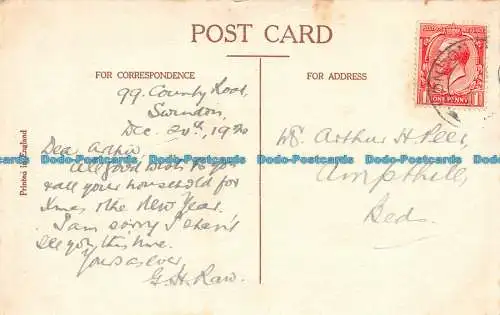 POST CARD
FOR CORRESPONDENCE
FOR ADDRESS
99. County Road,
Swindon,
Dec. 20th, 19
Dear Arthur,
All good wishes to you
& all your household for
Xmas & the New Year.
I am sorry I shan't
see you this time.
Yours as ever,
G. H. Raw.
Arthur H Peer
Ampthill,
Beds.
Printed in England
ONE PENNY
Dodo-Postcards Dodo-Postcards Dodo-Postcards Dodo-Postcards